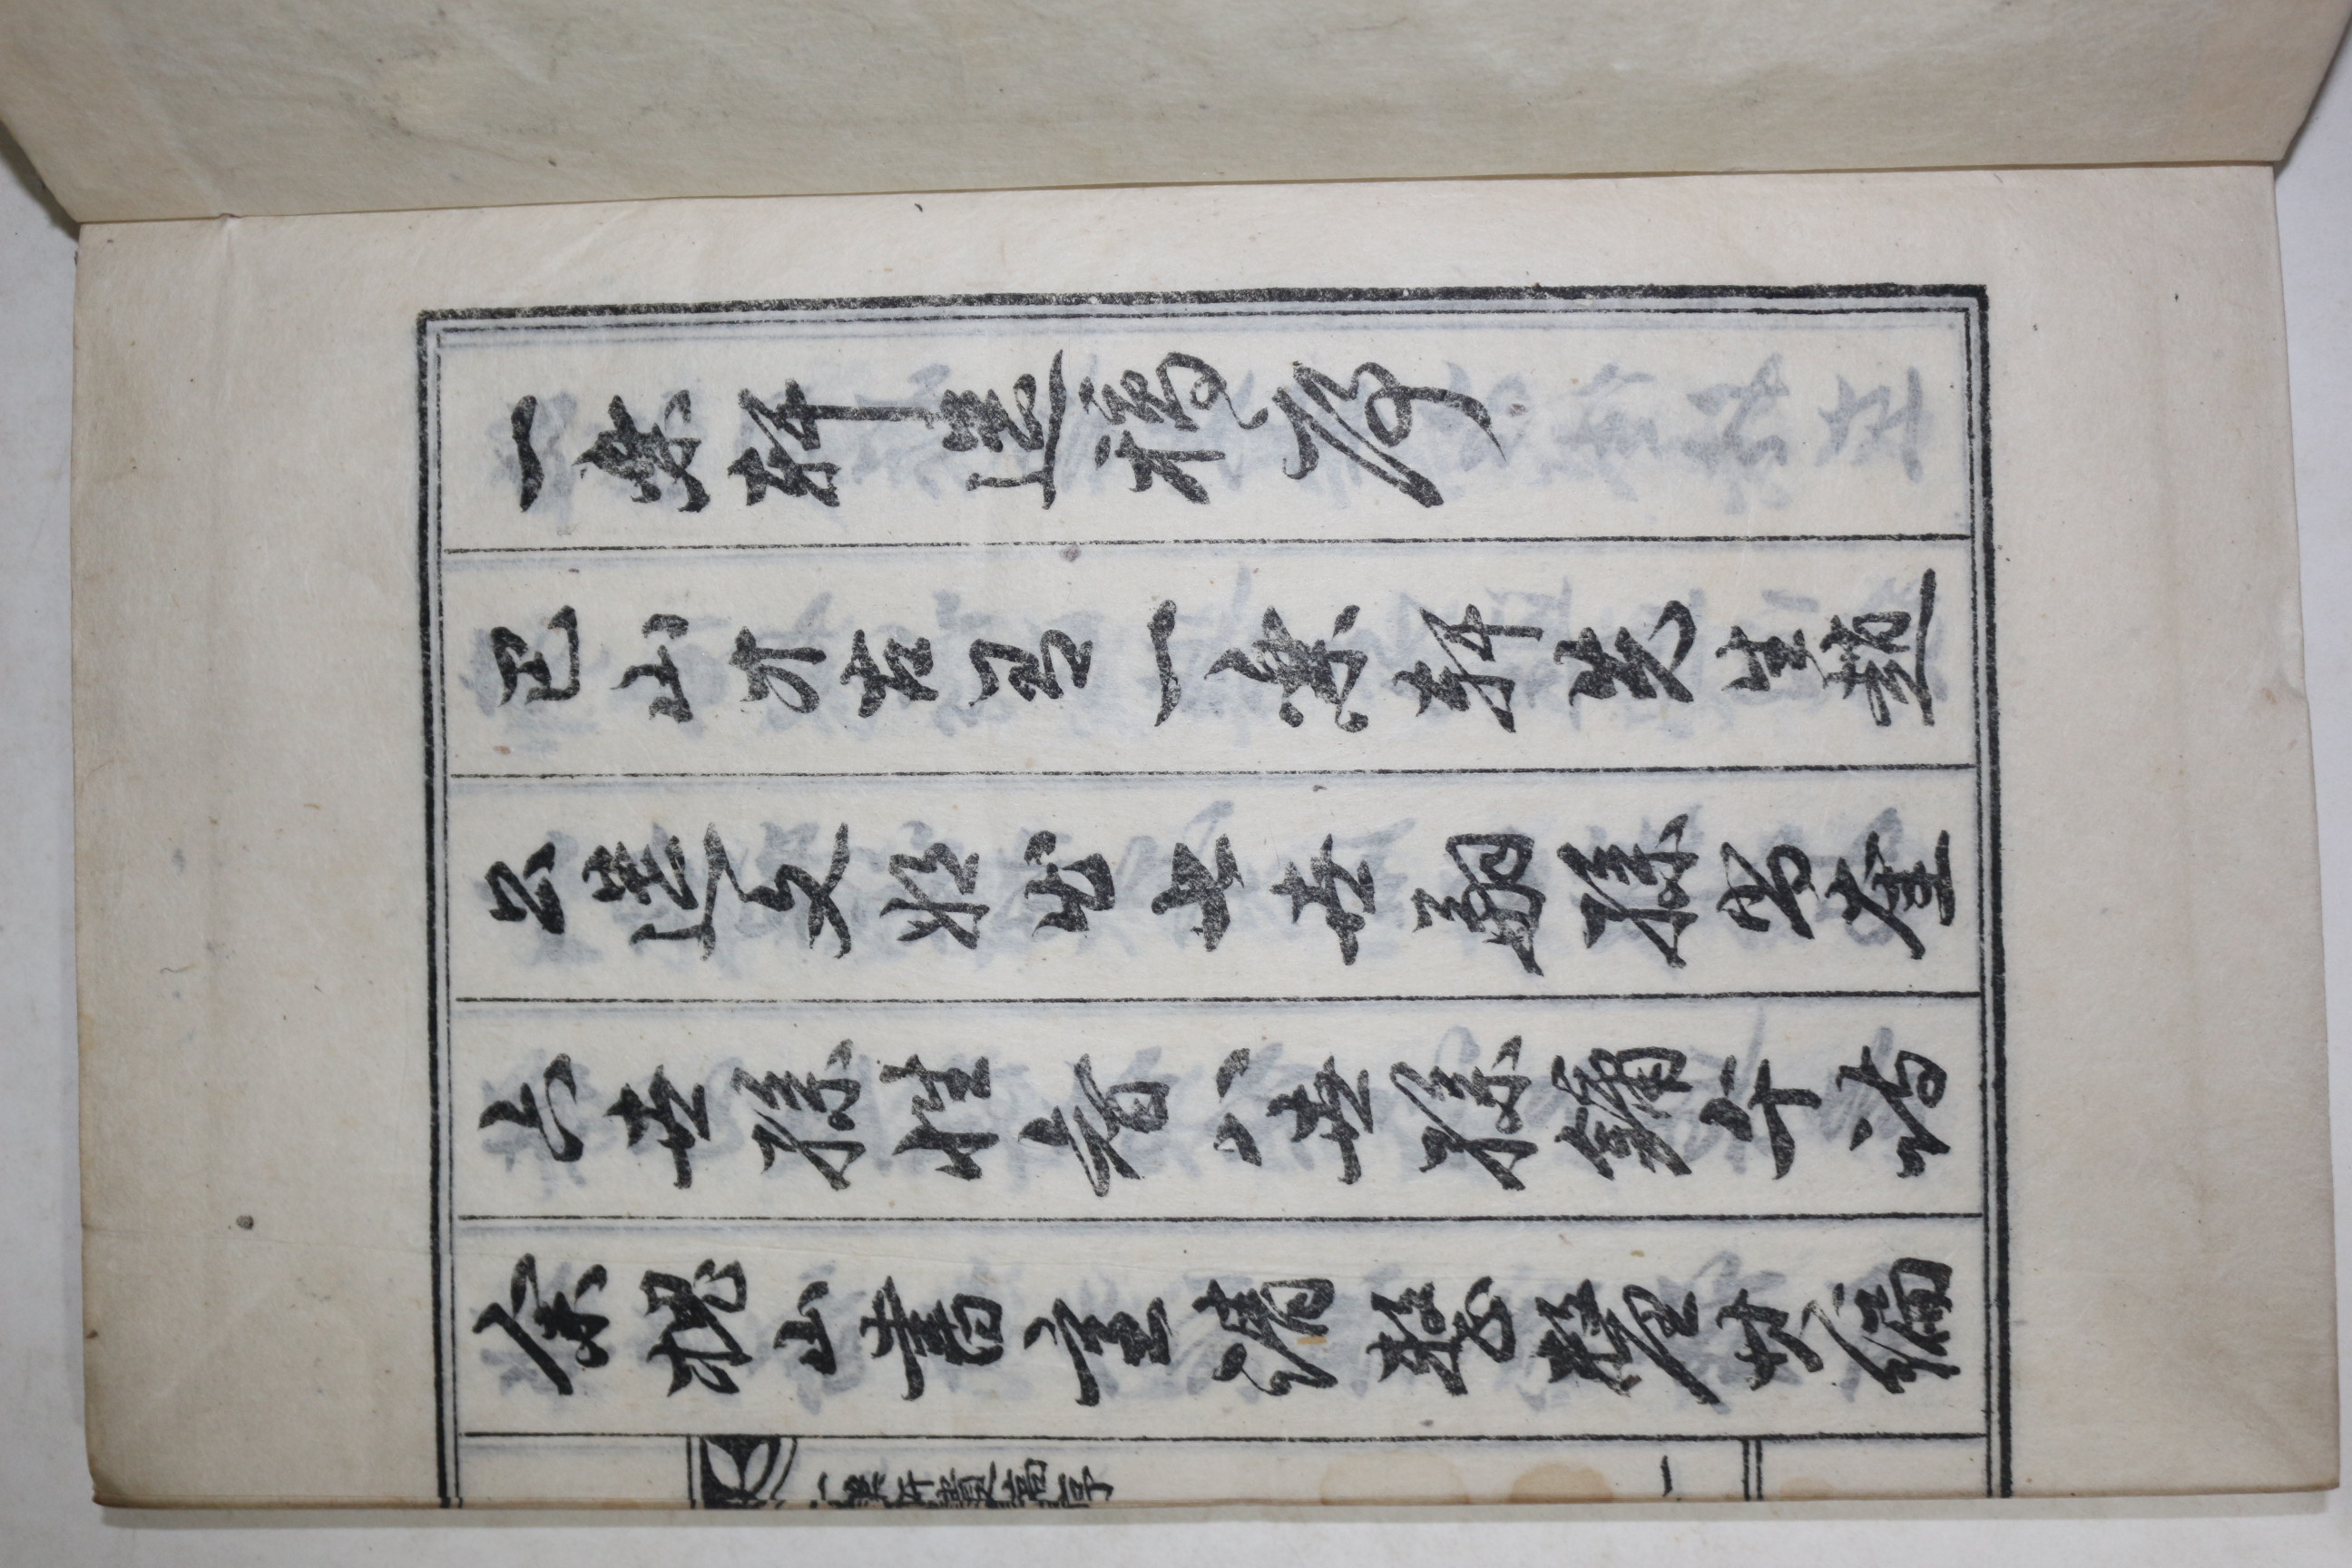 一樂軒遺稿序
巴山才古有一樂軒先生趙
公遺文將出七世嗣孫尙奎
六世孫性八世孫鏞午訪
余槐山書室請整釐其編
一樂軒遺稿序
一